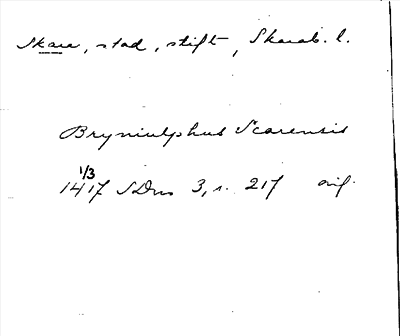 Skara, stad, stift, Skarab. l.
Bryniulphus Scarensis
1/3
1417 SDns 3, s. 217 orig.